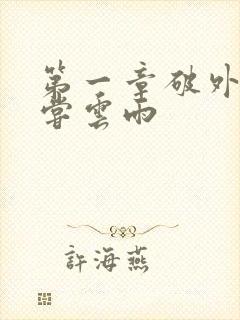 第一章破外
嘗雲雨
許海燕